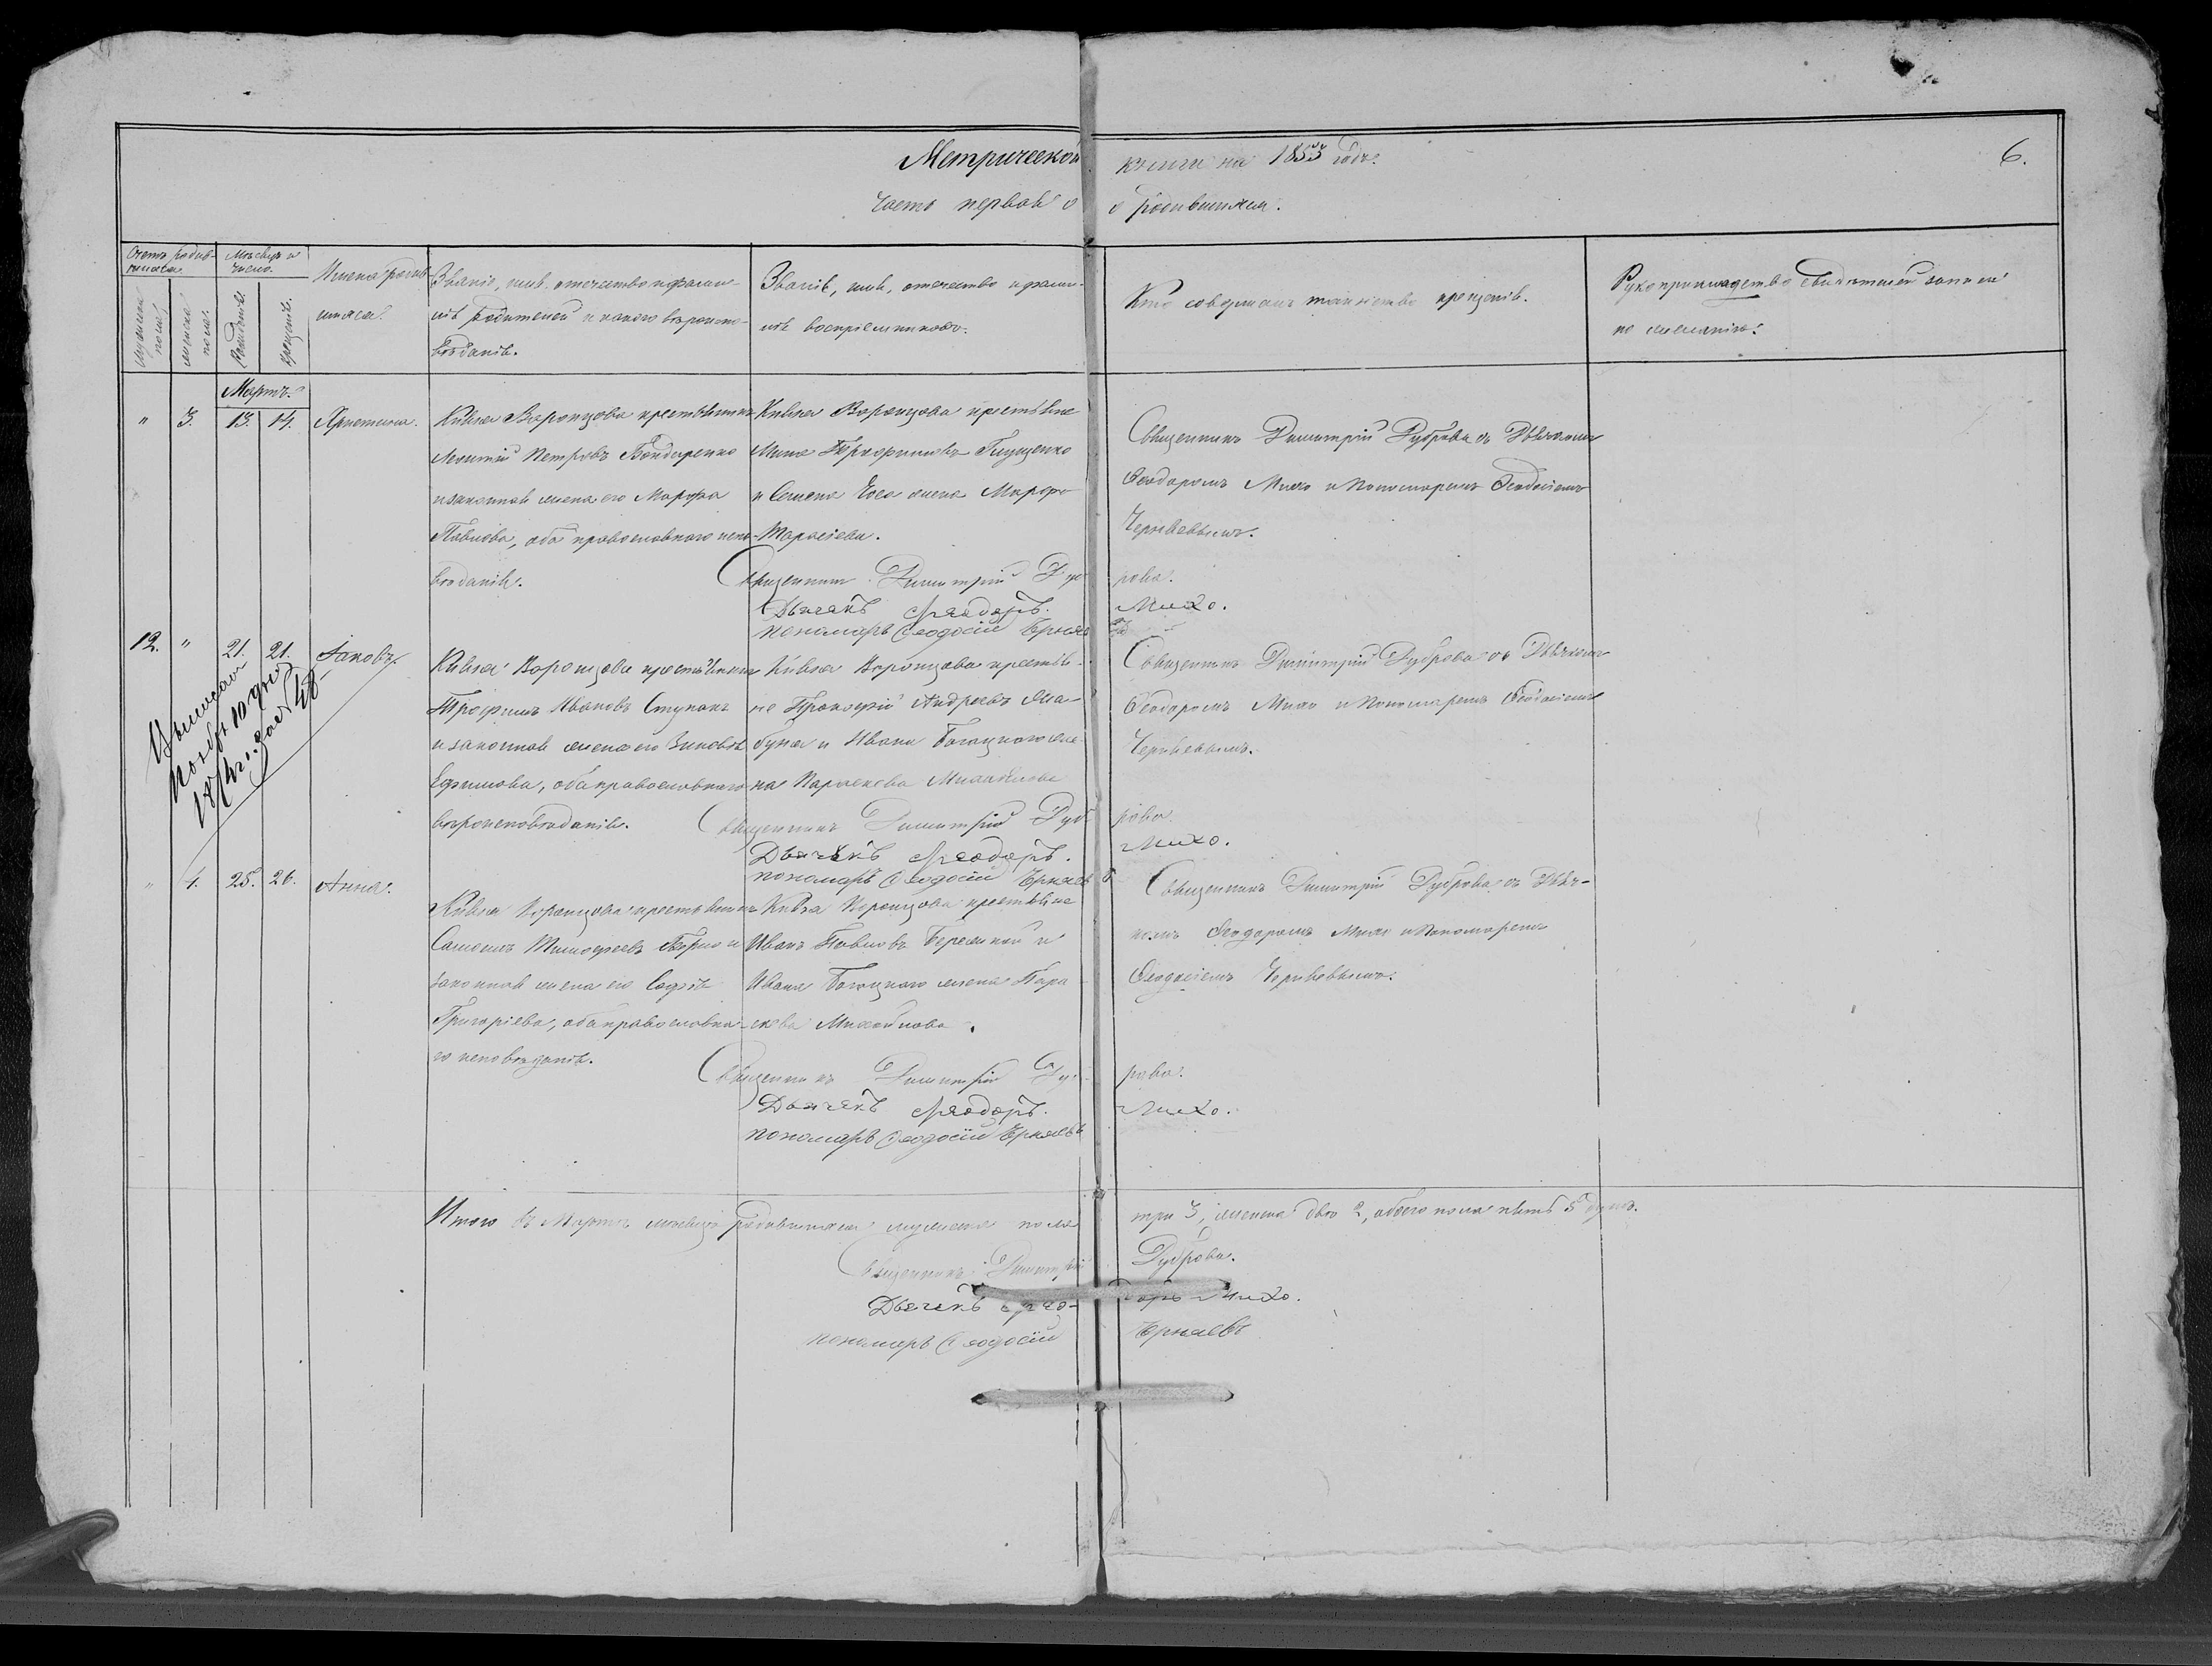 Метрической книги на 1853й годъ. 6.
Часть первая о родившихся.
Счетъ родив-
шихся.
Мужеска пола.
Женска пола.
Мѣсяцъ и
число.
Рожденія
Крещенія.
Имена родив-
шихся.
Званіе, имя, отечество и фамил-
ія родителей и какого вѣроиспо-
вѣданія.
Званіе, имя, отечество и фами-
лія воспріемниковъ.
Кто совершалъ таинство крещенія.
Рукоприкладство свидѣтелей записи
по желанію.
Мартъ.
" 3. 13. 14. Христина.
Князя Воронцова крестьянинъ
Леонтій Петровъ Бондаренко
и законная жена его Марфа
Павлова, оба православнаго испо-
вѣданія.
Князя Воронцова крестьяне
Мина Глущенко
и Семена жена Марфа
Тарасіева.
Священникъ Димитрій Дуброва съ Дьячкомъ
Ѳеодоромъ Михо и Пономаремъ Ѳеодосіемъ
Черняевымъ.
Священникъ Димитрій Дуброва.
Дьячекъ Ѳеодоръ Михо.
пономарь Ѳеодосій Черняевъ
12. " 21. 21. Іаковъ.
Князя Воронцова крестьянинъ
Трофимъ Ивановъ Ступакъ
и законная жена его Зиновія
Ефимова, оба православнаго
вѣроисповѣданія.
Князя Воронцова крестья-
не Прокофій Андреевъ
и Ивана Богацкого же-
на Параскева Михайлова
Священникъ Димитрій Дуброва съ Дьячкомъ
Ѳеодоромъ Михо и Пономаремъ Ѳеодосіемъ
Черняевымъ.
Священникъ Димитрій Дуброва
Дьячекъ Ѳеодоръ. Михо.
пономарь Ѳеодосій Черняевъ
" 4. 25. 26. Анна.
Князя Воронцова крестьянинъ
Тимофеевъ и
законная жена его Софія
Григоріева, оба православна-
го исповѣданія.
Князя Воронцова крестьяне
Иванъ Павловъ и
Ивана Богацкого жена Пара-
скева Михайлова.
Священникъ Димитрій Дуброва съ Дьяч-
комъ Ѳеодоромъ Михо и Пономаремъ
Ѳеодосіемъ Черняевымъ.
Священникъ Димитрій Дуброва.
Дьячекъ Ѳеодоръ. Михо.
пономарь Ѳеодосій Черняевъ
Итого въ Мартѣ мѣсяцѣ родившихся мужеска пола три 3, женска двѣ 2, обоего пола пять 5 душъ.
Священникъ Димитрій Дуброва.
Дьячекъ Ѳеодоръ Михо.
пономарь Ѳеодосій Черняевъ